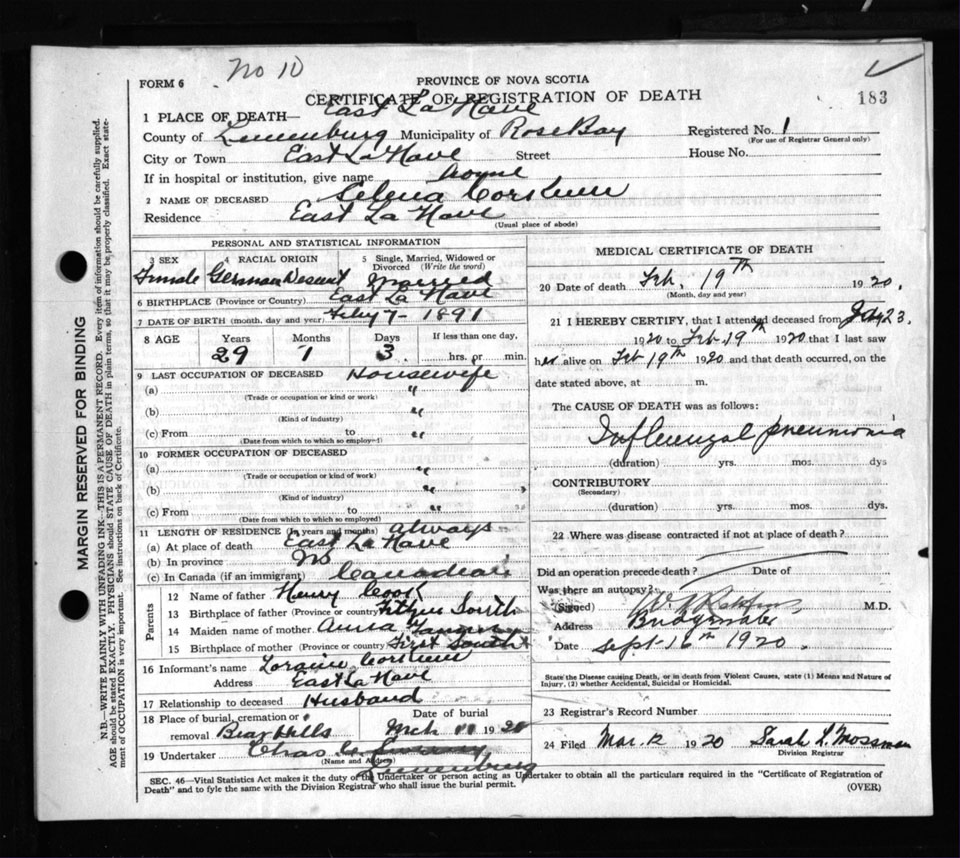 No 10
FORM 6
PROVINCE OF NOVA SCOTIA
CERTIFICATE OF REGISTRATION OF DEATH
183
1 PLACE OF DEATH— East La Have
County of Lunenburg Municipality of Rose Bay Registered No. 1
(For use of Registrar General only)
City or Town East La Have Street House No.
If in hospital or institution, give name
2 NAME OF DECEASED Selena Corkum
Residence East La Have
(Usual place of abode)
PERSONAL AND STATISTICAL INFORMATION
3 SEX 4 RACIAL ORIGIN 5 Single, Married, Widowed or Divorced (Write the word)
Female German Desent Married
6 BIRTHPLACE (Province or Country) East La Have
7 DATE OF BIRTH (month, day and year) Feby 7 - 1891
8 AGE Years Months Days If less than one day,
29 1 3 hrs. or min.
9 LAST OCCUPATION OF DECEASED Housewife
(a) "
(Trade or occupation or kind or work)
(b) "
(Kind of industry)
(c) From to "
(Date from which to which so employed)
10 FORMER OCCUPATION OF DECEASED
(a) "
(Trade or occupation or kind of work)
(b) "
(Kind of industry)
(c) From to "
(Date from which to which so employed)
11 LENGTH OF RESIDENCE (In years and months) always
(a) At place of death East La Have
(b) In province
(c) In Canada (if an immigrant) Canadian
Parents
12 Name of father Henry Cook
13 Birthplace of father (Province or country) South
14 Maiden name of mother Anna
15 Birthplace of mother (Province or country) First South
16 Informant's name Loraine Corkum
Address East La Have
17 Relationship to deceased Husband
18 Place of burial, cremation or removal Date of burial
Mch 11 1920
19 Undertaker Chas
(Name and Address)
Lunenburg
MEDICAL CERTIFICATE OF DEATH
20 Date of death Feb. 19th 1920.
(Month, day and year)
21 I HEREBY CERTIFY, that I attended deceased from 23
1920 to Feb 19th 1920 that I last saw
her alive on Feb 19th 1920 and that death occurred, on the
date stated above, at m.
The CAUSE OF DEATH was as follows:
Influenzal pneumonia
(duration) yrs. mos. dys
CONTRIBUTORY
(Secondary)
(duration) yrs. mos. dys.
22 Where was disease contracted if not at place of death?
Did an operation precede death? Date of
Was there an autopsy?
(Signed) M.D.
Address Bridgewater
Date Sept 16th 1920.
State the Disease causing Death, or in death from Violent Causes, state (1) Means and Nature of
Injury, (2) whether Accidental, Suicidal or Homicidal.
23 Registrar's Record Number
24 Filed Mar. 12 1920 Sarah L. Mossman
Division Registrar
SEC. 46—Vital Statistics Act makes it the duty of the Undertaker or person acting as Undertaker to obtain all the particulars required in the "Certificate of Registration of
Death" and to fyle the same with the Division Registrar who shall issue the burial permit.
(OVER)
MARGIN RESERVED FOR BINDING
N.B.—WRITE PLAINLY WITH UNFADING INK—THIS IS A PERMANENT RECORD. Every item of information should be carefully supplied.
AGE should be stated EXACTLY. PHYSICIANS should STATE CAUSE OF DEATH in plain terms, so that it may be properly classified. Exact state-
ment of OCCUPATION is very important. See instructions on back of Certificate.